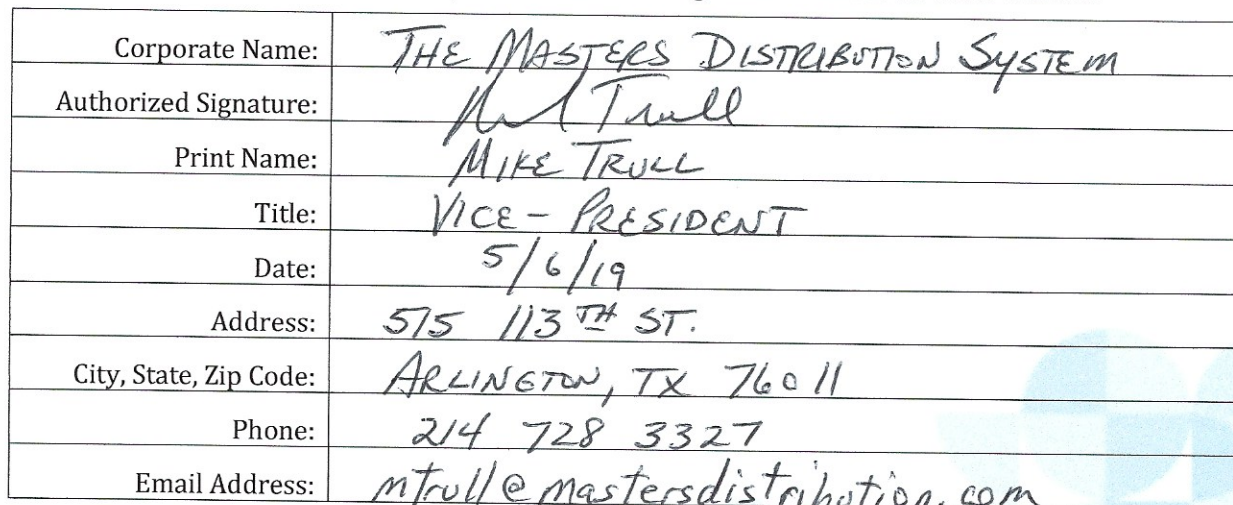 Corporate Name: THE MASTERS DISTRIBUTION SYSTEM
Authorized Signature: Trull
Print Name: MIKE TRULL
Title: VICE - PRESIDENT
Date: 5/6/19
Address: 515 113TH ST.
City, State, Zip Code: ARLINGTON, TX 76011
Phone: 214 728 3327
Email Address: mtrull@mastersdistribution.com